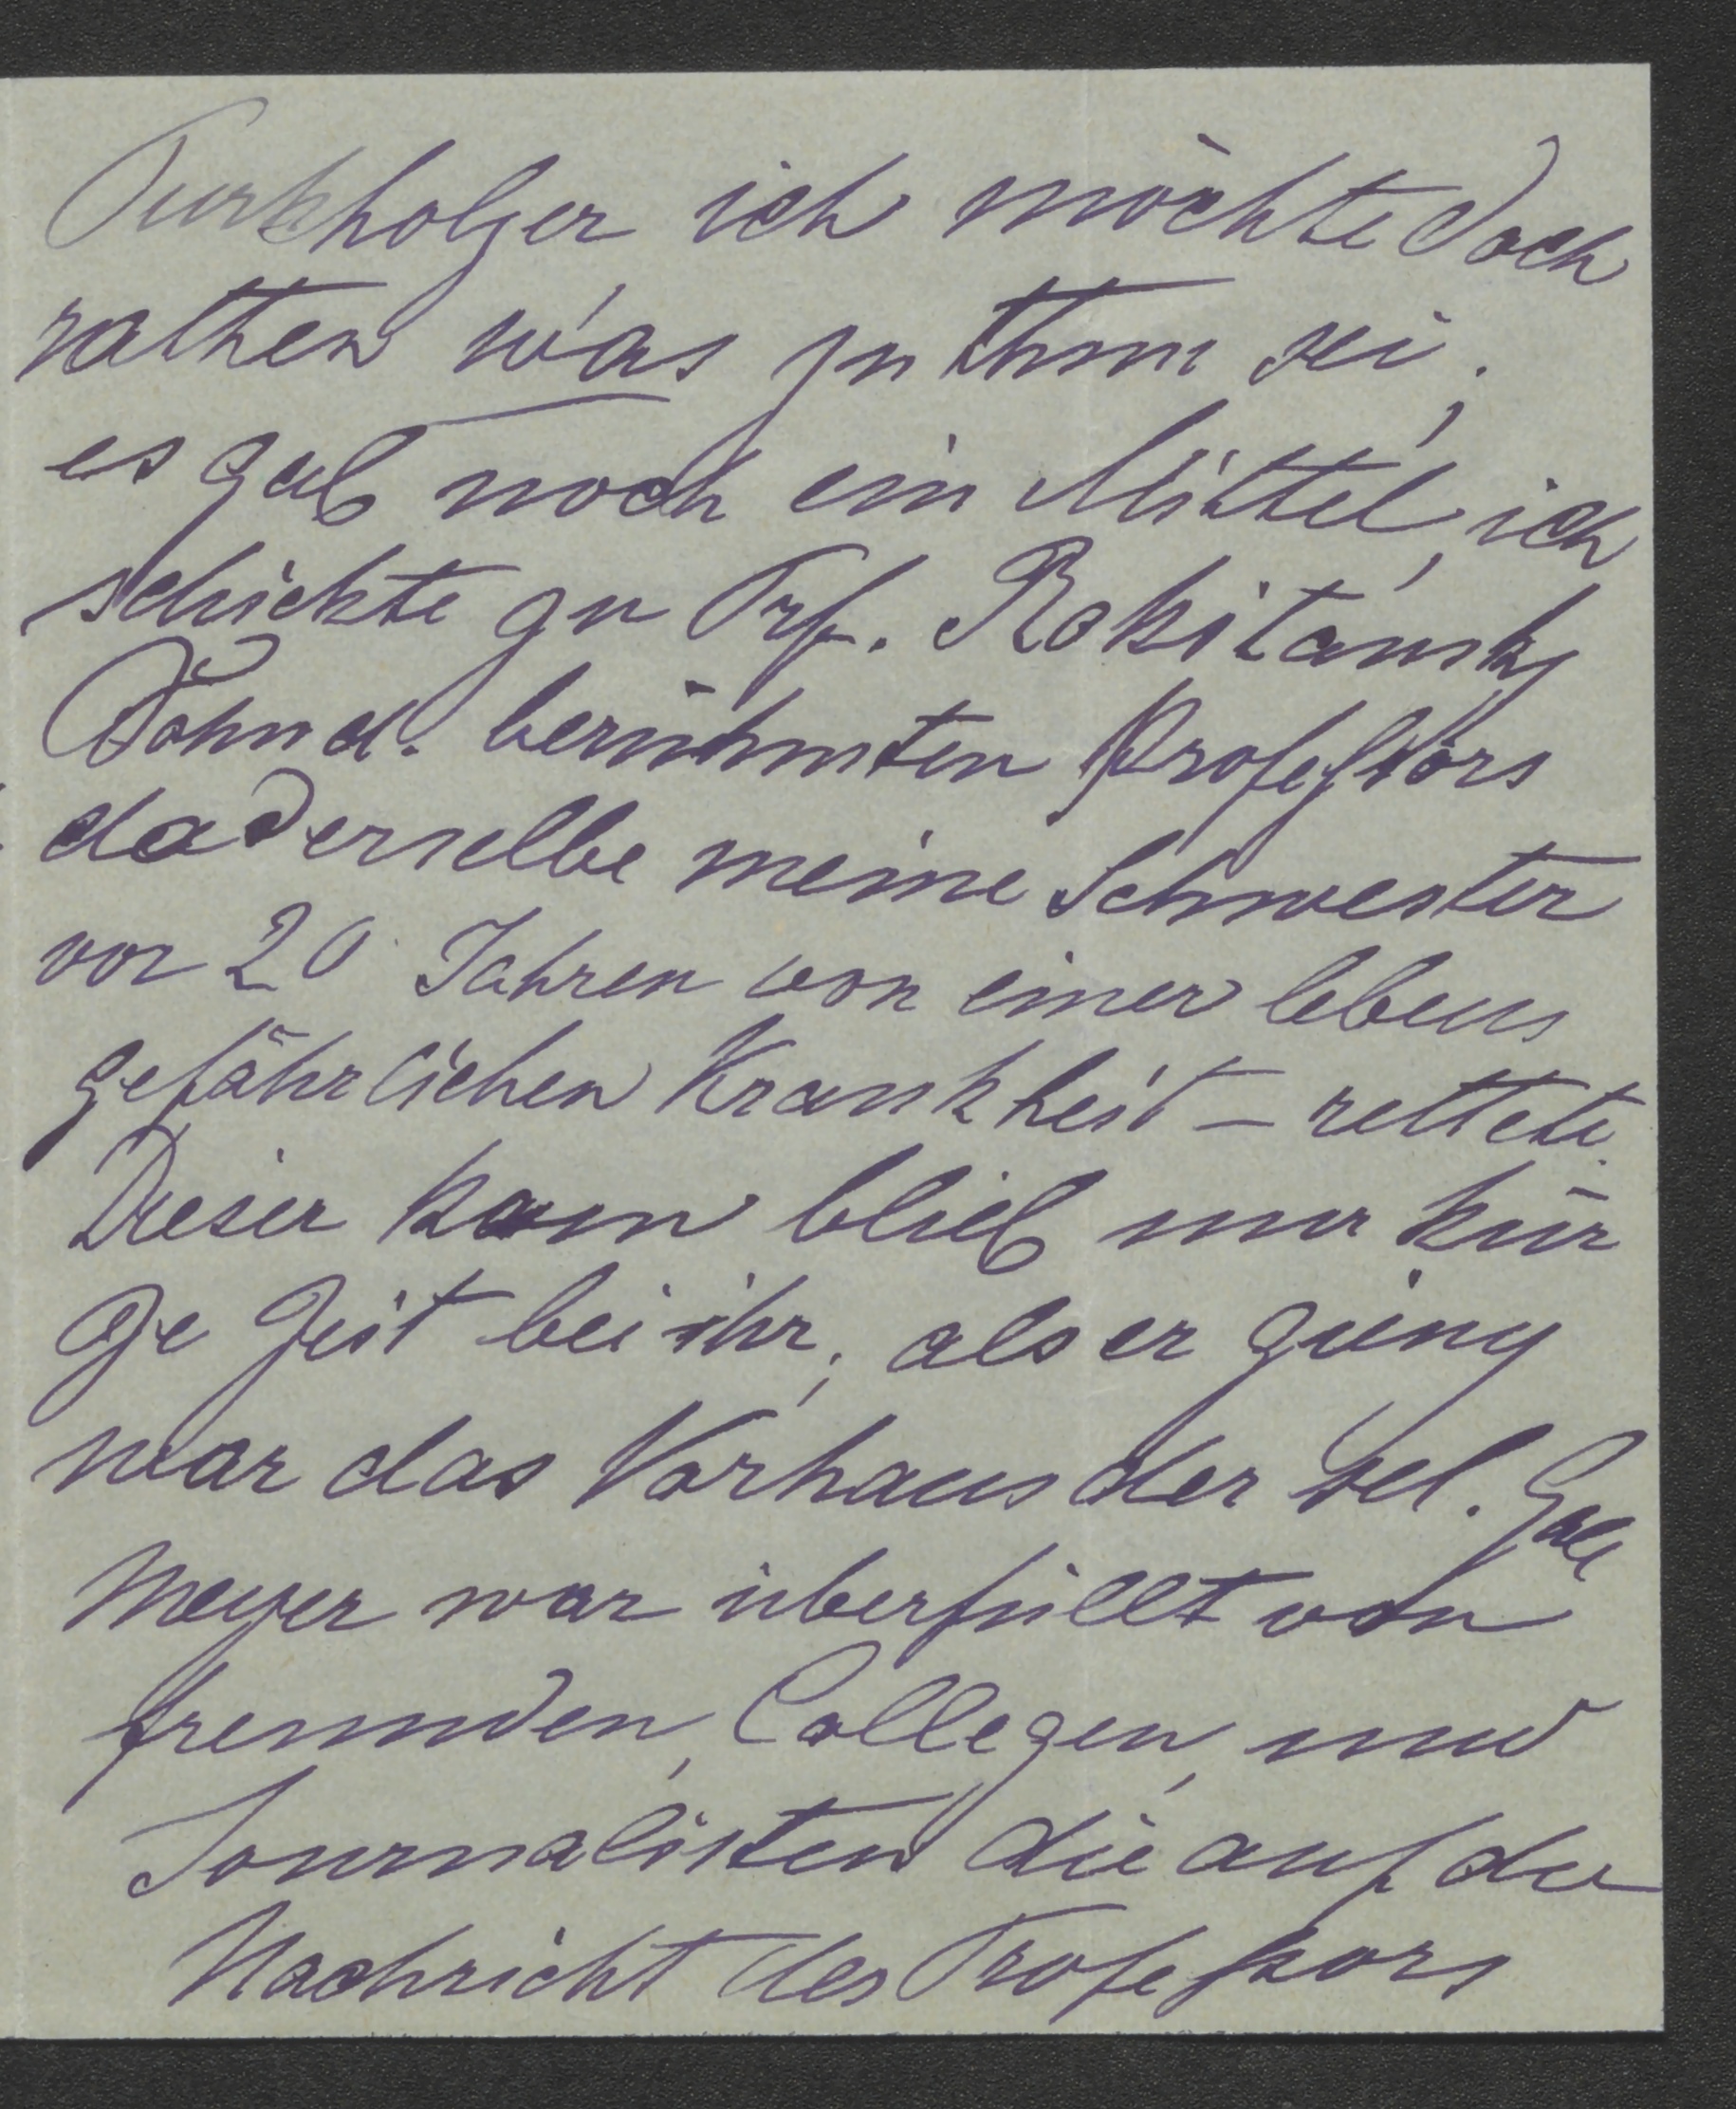 Purkholzer ich möchte doch
rathen was zu thun sei.
es gab noch ein Mittel, ich
schickte zu Prf. Rokitansky
Sohn d. berühmten Professors
da derselbe meine Schwester
vor 20 Jahren von einer lebens
gefährlichen Krankheit – rettete.
Dieser kam blieb nur kur
ze Zeit bei ihr, als er gieng
war das Vorhaus der sel. Gall
meyer war überfüllt von
fremden, Collegen, und
Journalisten die auf die
Nachricht des Professors